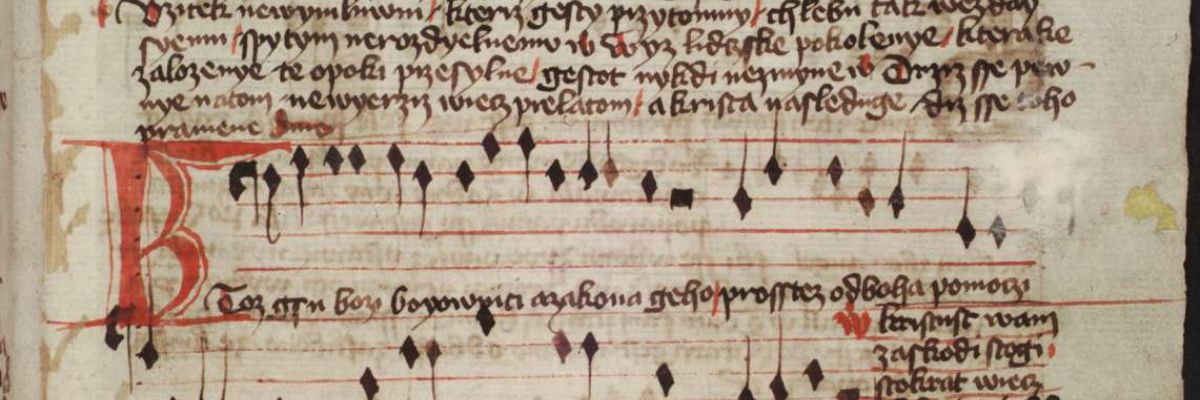 Vzitek newymluwni / kteriz gesty przytomny / chlebu tak wezday
syemu / spytym nerozdyelnemu w Wyz lidzske pokolenye / kterake
zalozenye te opoki przesylne / gestot nykdi nezmyne w Drziz sse pew-
nye natom newyerziz wiecz prelatom / a krista nasleduge drz sse toho
pramene
Ktoz gsu bozi boyownyci azakona geho / prosstez odboha pomoczi
kristust wam
zasskodi stogi
stokrat wiecz